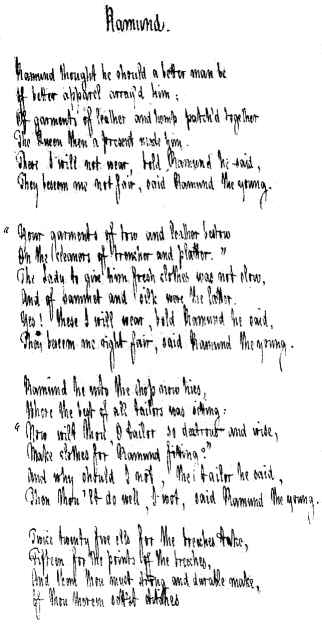 Ramund.
Ramund thought he should a better man be
If better apparel array'd him;
Of garments of leather and hemp patch'd together
The Queen then a present made him.
These I will not wear, bold Ramund he said,
They beseem me not fair, said Ramund the young.
"Your garments of tow and leather bestow
On the cleaners of trencher and platter."
The Lady to give him fresh clothes was not slow,
And of sammet and silk were the latter.
Yes! these I will wear, bold Ramund he said,
They beseem me right fair, said Ramund the young.
Ramund he unto the shop now hies,
Where the best of all tailors was sitting:
"Now wilt thou, O tailor so dextrous and wise,
Make clothes for Ramund fitting?"
And why should I not, the tailor he said,
Then thou'lt do well, I wot, said Ramund the young.
Twice twenty five ells for the breeches take,
Fifteen for the points of the breeches,
And them thou must strong and durable make,
If thou therein sett'st stitches